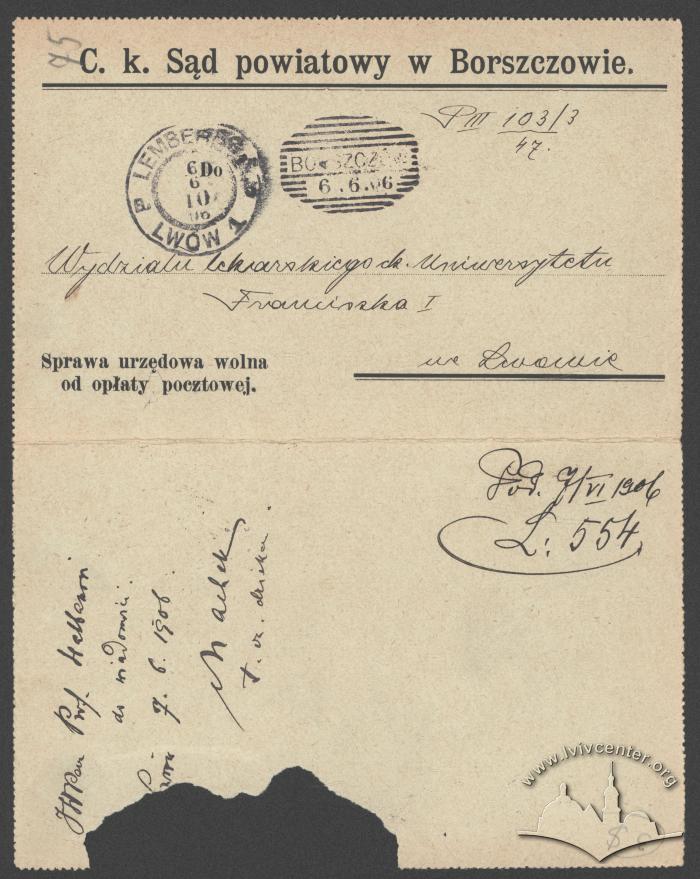 75
C. k. Sąd powiatowy w Borszczowie.
P III 103/3
47.
LEMBERG
6 Do
6
10
06
LWÓW 1
BORSZCZÓW
6.6.06
Wydziału lekarskiego ck. Uniwersytetu
Franciszka I
we Lwowie
Sprawa urzędowa wolna
od opłaty pocztowej.
Pod. 7/VI 1906
L: 554
Prof.
do wiadomości.
7. 6. 1906.
Machek
t. cz. dziekan.
www.lvivcenter.org